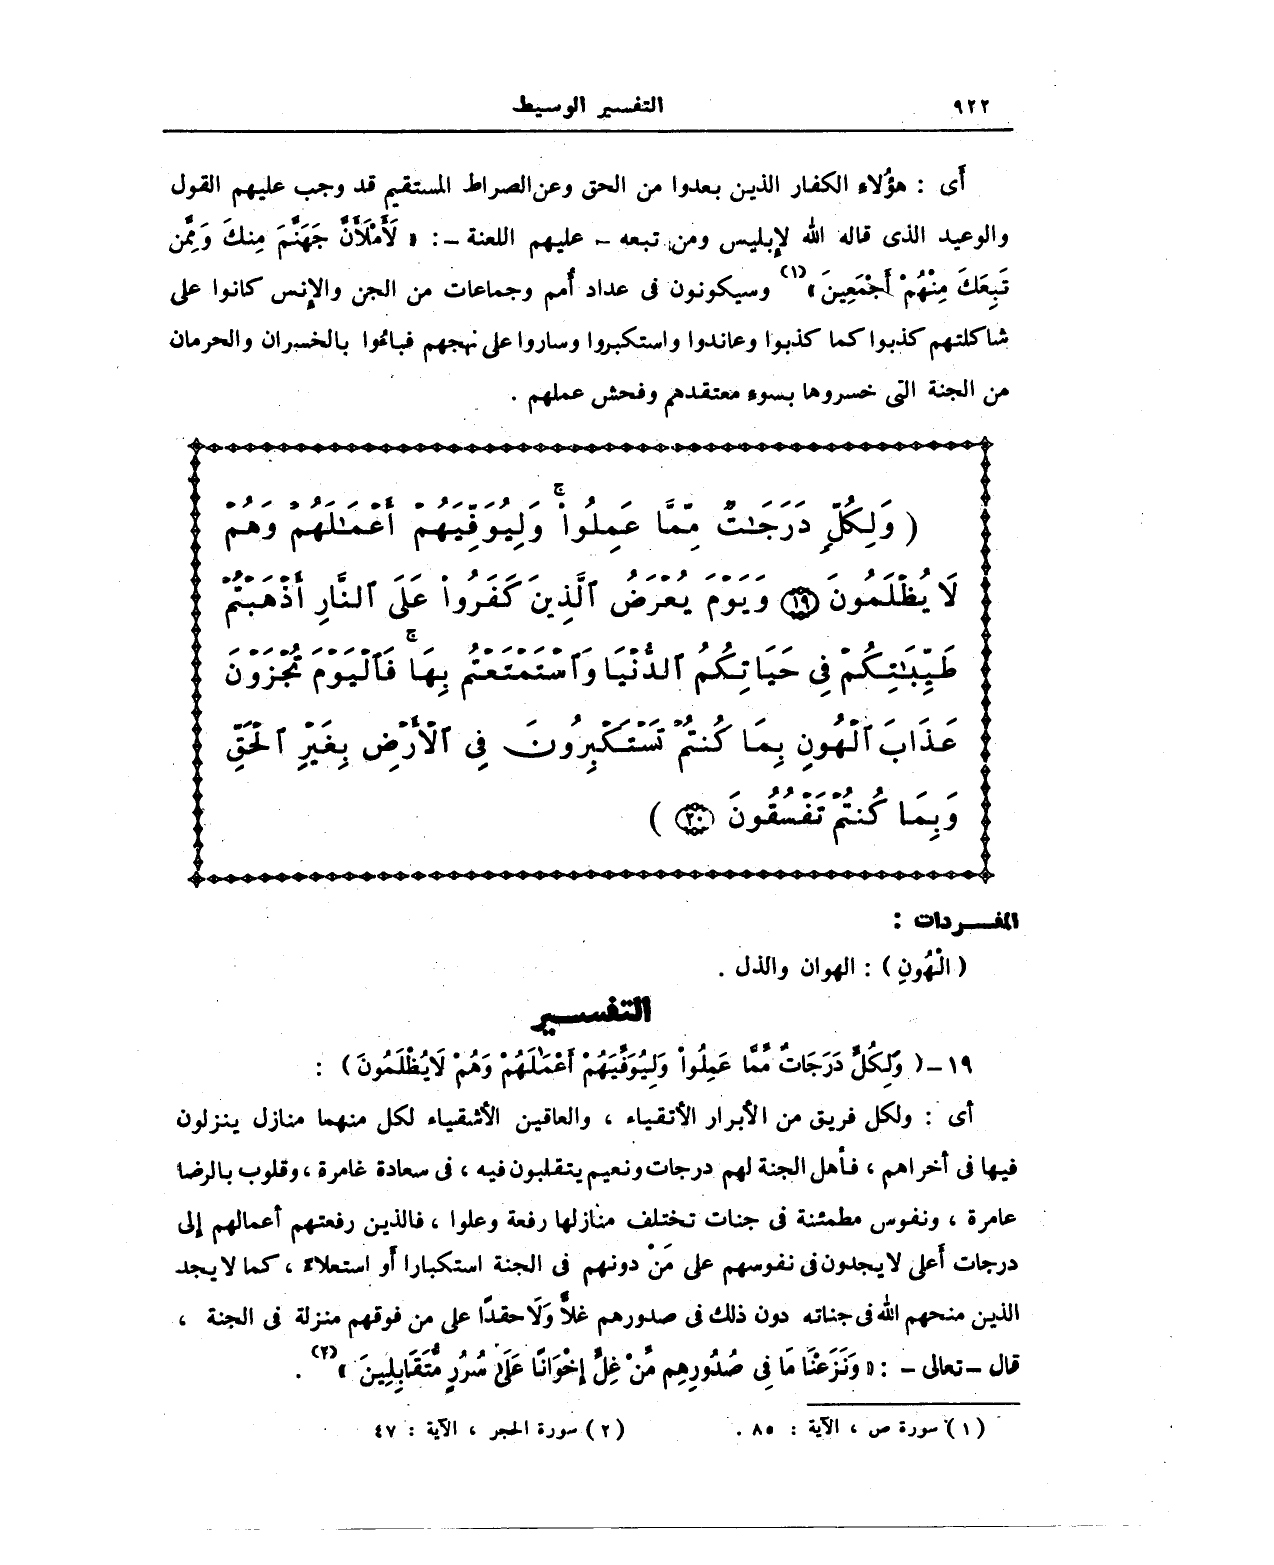 ٩٢٢
التفسير الوسيط
أَى : هؤُلاء الكفار الذين بعدوا من الحق وعن الصراط المستقيم قد وجب عليهم القول
والوعيد الذى قاله الله لإبليس ومن تبعه - عليهم اللعنة - : « لَأَمْلَأَنَّ جَهَنَّمَ مِنكَ وَمِمَّن
تَبِعَكَ مِنْهُمْ أَجْمَعِينَ »(١) وسيكونون فى عداد أُمم وجماعات من الجن والإنس كانوا على
شاكلتهم كذبوا كما كذبوا وعاندوا واستكبروا وساروا على نهجهم فباءُوا بالخسران والحرمان
من الجنة التى خسروها بسوء معتقدهم وفحش عملهم .
( وَلِكُلٍّ دَرَجَٰتٌ مِّمَّا عَمِلُوا۟ ۖ وَلِيُوَفِّيَهُمْ أَعْمَٰلَهُمْ وَهُمْ
لَا يُظْلَمُونَ ﴿١٩﴾ وَيَوْمَ يُعْرَضُ ٱلَّذِينَ كَفَرُوا۟ عَلَى ٱلنَّارِ أَذْهَبْتُمْ
طَيِّبَٰتِكُمْ فِى حَيَاتِكُمُ ٱلدُّنْيَا وَٱسْتَمْتَعْتُم بِهَا ۚ فَٱلْيَوْمَ تُجْزَوْنَ
عَذَابَ ٱلْهُونِ بِمَا كُنتُمْ تَسْتَكْبِرُونَ فِى ٱلْأَرْضِ بِغَيْرِ ٱلْحَقِّ
وَبِمَا كُنتُمْ تَفْسُقُونَ ﴿٢٠﴾ )
المفـــردات :
( الْهُونِ ) : الهوان والذل .
التفســـير
١٩ - ( وَلِكُلٍّ دَرَجَاتٌ مِّمَّا عَمِلُوا۟ وَلِيُوَفِّيَهُمْ أَعْمَٰلَهُمْ وَهُمْ لَا يُظْلَمُونَ ) :
أى : ولكل فريق من الأبرار الأتقياء ، والعاقين الأشقياء لكل منهما منازل ينزلون
فيها فى أخراهم ، فأهل الجنة لهم درجات ونعيم يتقلبون فيه ، فى سعادة غامرة ، وقلوب بالرضا
عامرة ، ونفوس مطمئنة فى جنات تختلف منازلها رفعة وعلوا ، فالذين رفعتهم أعمالهم إلى
درجات أَعلى لا يجدون فى نفوسهم على مَنْ دونهم فى الجنة استكبارا أَو استعلاءً ، كما لا يجد
الذين منحهم الله فى جناته دون ذلك فى صدورهم غلاًّ وَلَا حقدًا على من فوقهم منزلة فى الجنة ،
قال - تعالى - : « وَنَزَعْنَا مَا فِى صُدُورِهِم مِّنْ غِلٍّ إِخْوَانًا عَلَىٰ سُرُرٍ مُّتَقَابِلِينَ »(٢) .
(١) سورة ص ، الآية : ٨٥ .
(٢) سورة الحجر ، الآية : ٤٧